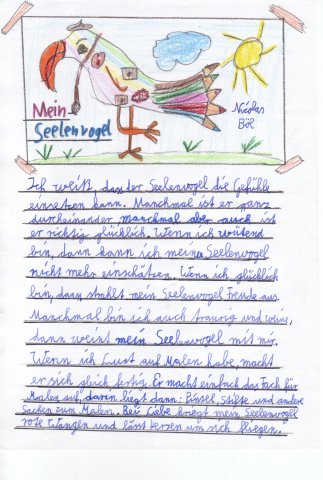 Mein
Seelenvogel
Nicolas
Böl
Ich weiß, dass der Seelenvogel die Gefühle
einsetzen kann. Manchmal ist er ganz
durcheinander manchmal aber auch ist
er richtig glücklich. Wenn ich wütend
bin, dann kann ich meinen Seelenvogel
nicht mehr einschätzen. Wenn ich glücklich
bin, dann strahlt mein Seelenvogel Freude aus.
Manchmal bin ich auch traurig und weine,
dann weint mein Seelenvogel mit mir.
Wenn ich Lust auf Malen habe, macht
er sich gleich fertig. Er macht einfach das Fach für
Malen auf, darin liegt dann: Pinsel, Stifte und andere
Sachen zum Malen. Bei Liebe kriegt mein Seelenvogel
rote Wangen und lässt Herzen um sich fliegen.